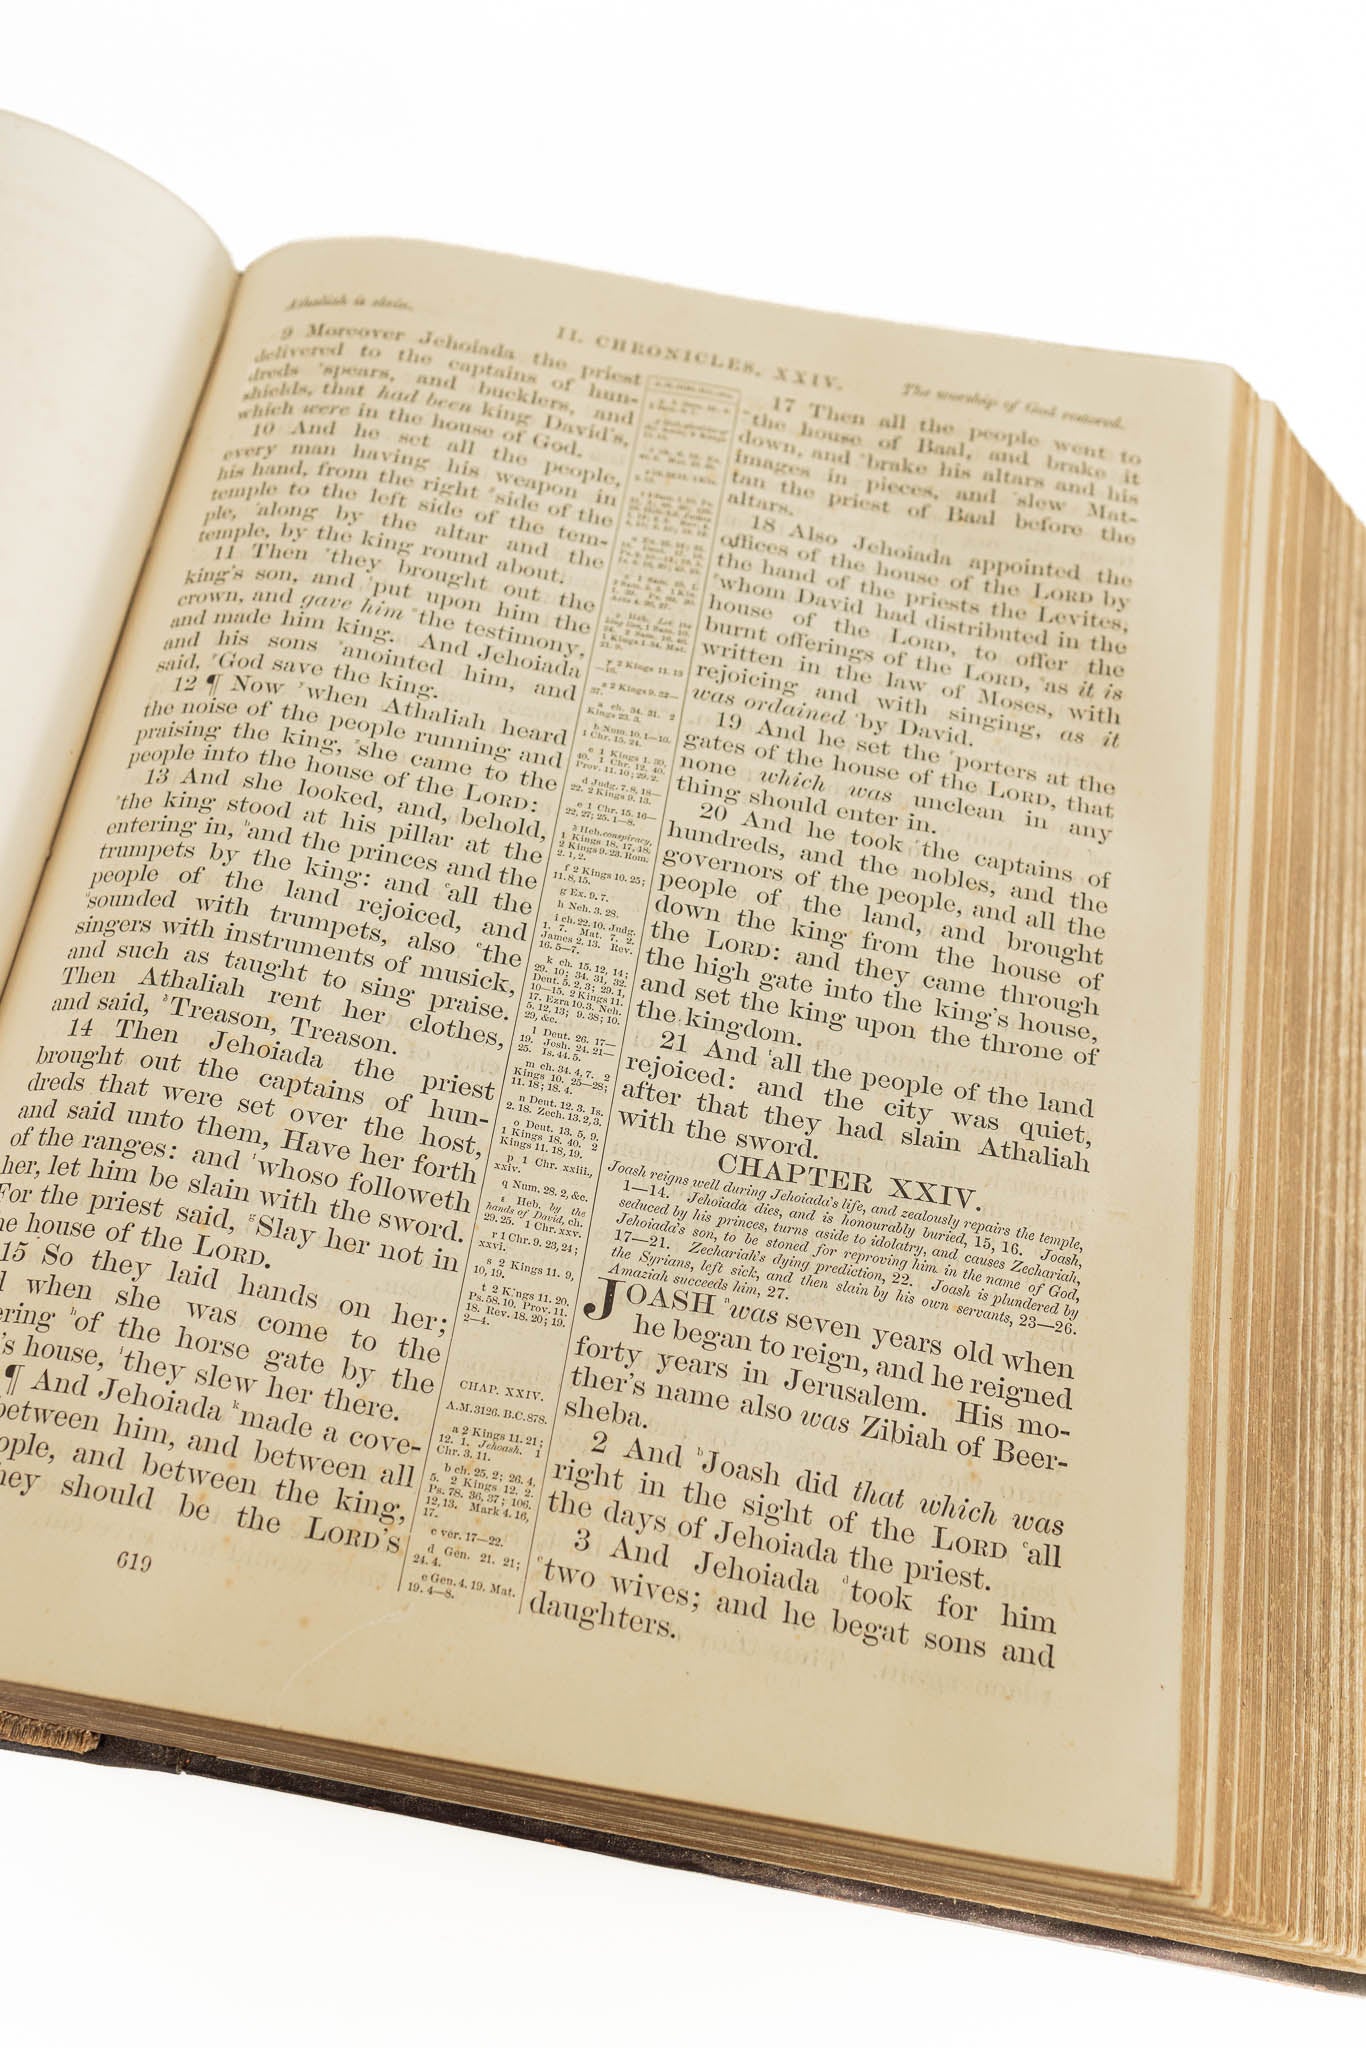 Athaliah is slain.
II. CHRONICLES, XXIV.
The worship of God restored.
9 Moreover Jehoiada the priest
delivered to the captains of hun-
dreds spears, and bucklers, and
shields, that had been king David's,
which were in the house of God.
10 And he set all the people,
every man having his weapon in
his hand, from the right side of the
temple to the left side of the tem-
ple, along by the altar and the
temple, by the king round about.
11 Then they brought out the
king's son, and put upon him the
crown, and gave him the testimony,
and made him king. And Jehoiada
and his sons anointed him, and
said, God save the king.
12 ¶ Now when Athaliah heard
the noise of the people running and
praising the king, she came to the
people into the house of the LORD:
13 And she looked, and, behold,
the king stood at his pillar at the
entering in, and the princes and the
trumpets by the king: and all the
people of the land rejoiced, and
sounded with trumpets, also the
singers with instruments of musick,
and such as taught to sing praise.
Then Athaliah rent her clothes,
and said, Treason, Treason.
14 Then Jehoiada the priest
brought out the captains of hun-
dreds that were set over the host,
and said unto them, Have her forth
of the ranges: and whoso followeth
her, let him be slain with the sword.
For the priest said, Slay her not in
the house of the LORD.
15 So they laid hands on her;
when she was come to the
ering of the horse gate by the
's house, they slew her there.
¶ And Jehoiada made a cove-
between him, and between all
ople, and between the king,
hey should be the LORD'S
619
r 2 Kings 11. 13
—16.
s 2 Kings 9. 32—
37.
a ch. 34. 31. 2
Kings 23. 3.
b Num. 10. 1—10.
1 Chr. 15. 24.
c 1 Kings 1. 39,
40. 1 Chr. 12. 40.
Prov. 11. 10; 29. 2.
d Judg. 7. 8, 18—
22. 2 Kings 9. 13.
e 1 Chr. 15. 16—
22, 27; 25. 1—8.
Heb. conspiracy.
1 Kings 18. 17, 18.
2 Kings 9. 23. Rom.
2. 1, 2.
f 2 Kings 10. 25;
11. 8, 15.
g Ex. 9. 7.
h Neh. 3. 28.
i ch. 22. 10. Judg.
1. 7. Mat. 7. 2.
James 2. 13. Rev.
16. 5—7.
k ch. 15. 12, 14;
29. 10; 34. 31, 32.
Deut. 5. 2, 3; 29. 1,
10—15. 2 Kings 11.
17. Ezra 10. 3. Neh.
5. 12, 13; 9. 38; 10.
29, &c.
l Deut. 26. 17—
19. Josh. 24. 21—
25. Is. 44. 5.
m ch. 34. 4, 7. 2
Kings 10. 25—28;
11. 18; 18. 4.
n Deut. 12. 3. Is.
2. 18. Zech. 13. 2, 3.
o Deut. 13. 5, 9.
1 Kings 18. 40. 2
Kings 11. 18, 19.
p 1 Chr. xxiii.,
xxiv.
q Num. 28. 2, &c.
Heb. by the
hands of David, ch.
29. 25. 1 Chr. xxv.
r 1 Chr. 9. 23, 24;
xxvi.
s 2 Kings 11. 9,
10, 19.
t 2 Kings 11. 20.
Ps. 58. 10. Prov. 11.
18. Rev. 18. 20; 19.
2—4.
CHAP. XXIV.
A.M. 3126. B.C. 878.
a 2 Kings 11. 21;
12. 1. Jehoash. 1
Chr. 3. 11.
b ch. 25. 2; 26. 4,
5. 2 Kings 12. 2.
Ps. 78. 36, 37; 106.
12, 13. Mark 4. 16,
17.
c ver. 17—22.
d Gen. 21. 21;
24. 4.
e Gen. 4. 19. Mat.
19. 4—8.
17 Then all the people went to
the house of Baal, and brake it
down, and brake his altars and his
images in pieces, and slew Mat-
tan the priest of Baal before the
altars.
18 Also Jehoiada appointed the
offices of the house of the LORD by
the hand of the priests the Levites,
whom David had distributed in the
house of the LORD, to offer the
burnt offerings of the LORD, as it is
written in the law of Moses, with
rejoicing and with singing, as it
was ordained by David.
19 And he set the porters at the
gates of the house of the LORD, that
none which was unclean in any
thing should enter in.
20 And he took the captains of
hundreds, and the nobles, and the
governors of the people, and all the
people of the land, and brought
down the king from the house of
the LORD: and they came through
the high gate into the king's house,
and set the king upon the throne of
the kingdom.
21 And all the people of the land
rejoiced: and the city was quiet,
after that they had slain Athaliah
with the sword.
CHAPTER XXIV.
Joash reigns well during Jehoiada's life, and zealously repairs the temple,
1—14. Jehoiada dies, and is honourably buried, 15, 16. Joash,
seduced by his princes, turns aside to idolatry, and causes Zechariah,
Jehoiada's son, to be stoned for reproving him in the name of God,
17—21. Zechariah's dying prediction, 22. Joash is plundered by
the Syrians, left sick, and then slain by his own servants, 23—26.
Amaziah succeeds him, 27.
JOASH was seven years old when
he began to reign, and he reigned
forty years in Jerusalem. His mo-
ther's name also was Zibiah of Beer-
sheba.
2 And Joash did that which was
right in the sight of the LORD all
the days of Jehoiada the priest.
3 And Jehoiada took for him
two wives; and he begat sons and
daughters.